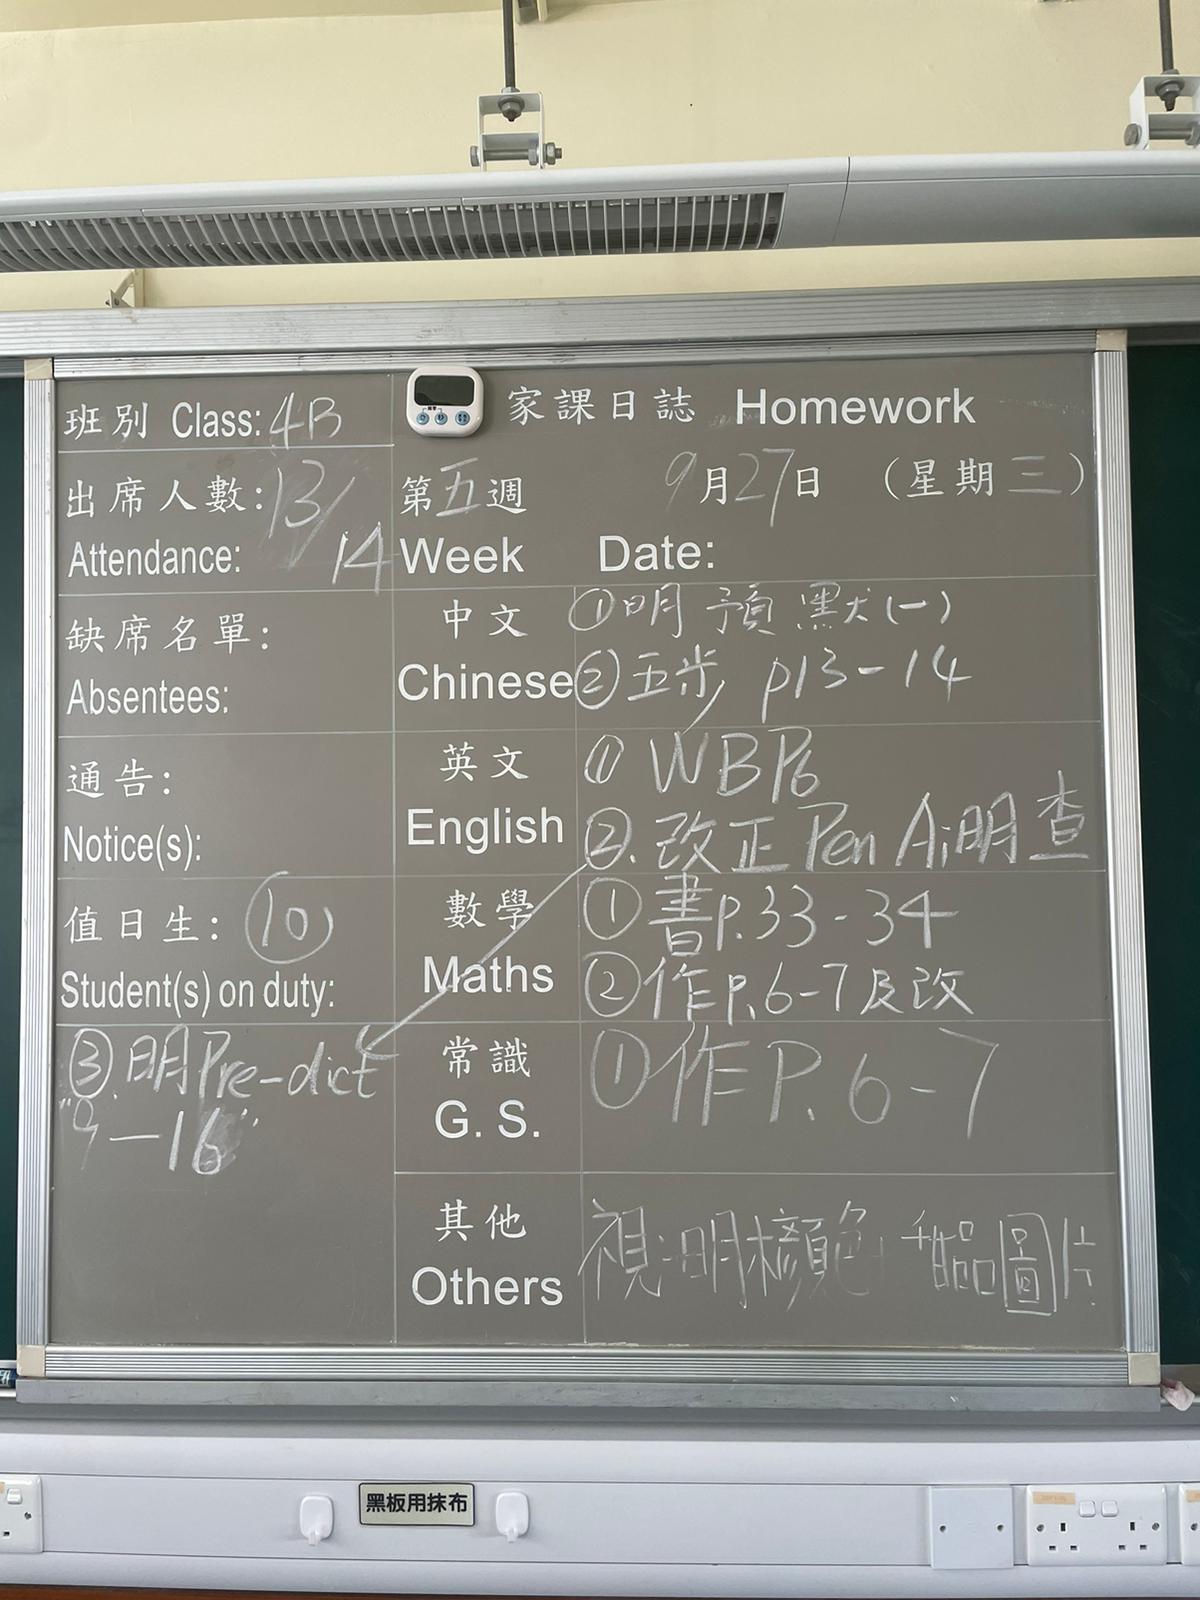 班別 Class: 4B
家課日誌 Homework
出席人數: 13/14
Attendance:
第五週 9月27日 (星期三)
Week Date:
缺席名單:
Absentees:
中文
Chinese
① 明 預 默(一)
② 五步 p13-14
通告:
Notice(s):
英文
English
① WB P6
②. 改正 Pen A; 明查
值日生: ⑩
Student(s) on duty:
數學
Maths
① 書P.33-34
② 作P.6-7及改
③. 明Pre-dict
"9—16"
常識
G. S.
① 作P.6-7
其他
Others
視:明 顏色 甜品圖片
黑板用抹布